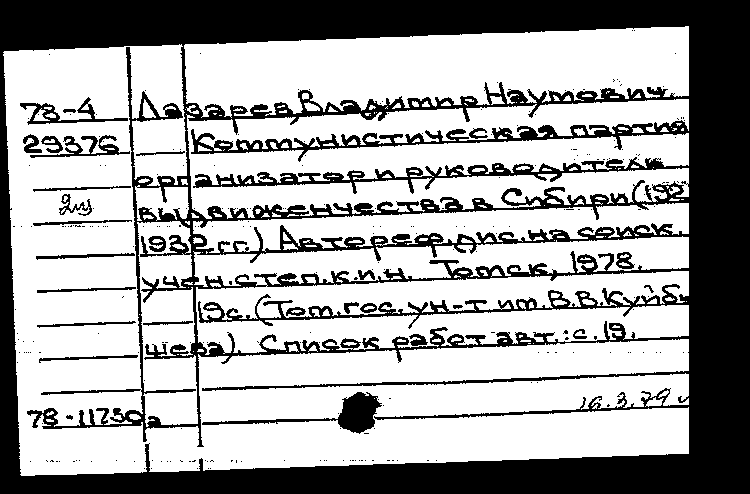 78-4 Лазарев, Владимир Наумович.
29376 Коммунистическая партия
организатор и руководитель
2 из выдвиженчества в Сибири (192
1932 гг.). Автореф. дис. на соиск.
учен. степ. к.и.н. Томск, 1978.
19с. (Том. гос. ун-т им. В.В. Куйбы
шева). Список работ авт.: с. 19.
78-11750а
16.3.79